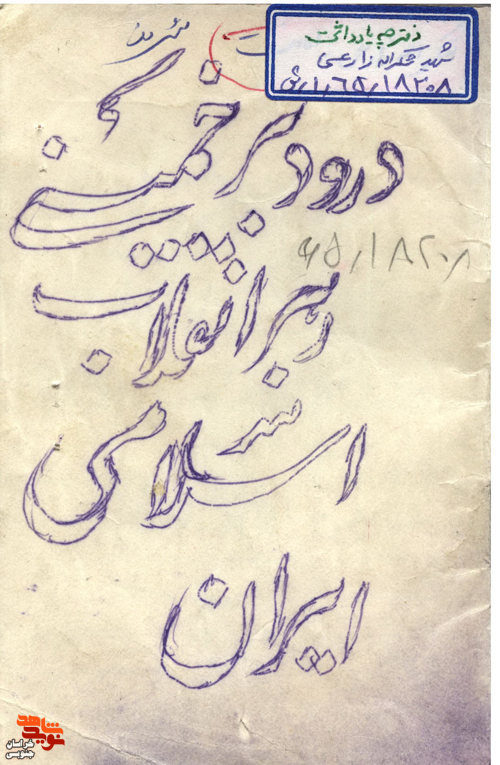 دفترچه یادداشت
شهید زارعی
۶۵/۱۸۲۰۸
درود بر خمینی
۶۵/۱۸۲۰۸
رهبر انقلاب
اسلامی
ایران
نوید شاهد
خراسان
جنوبی